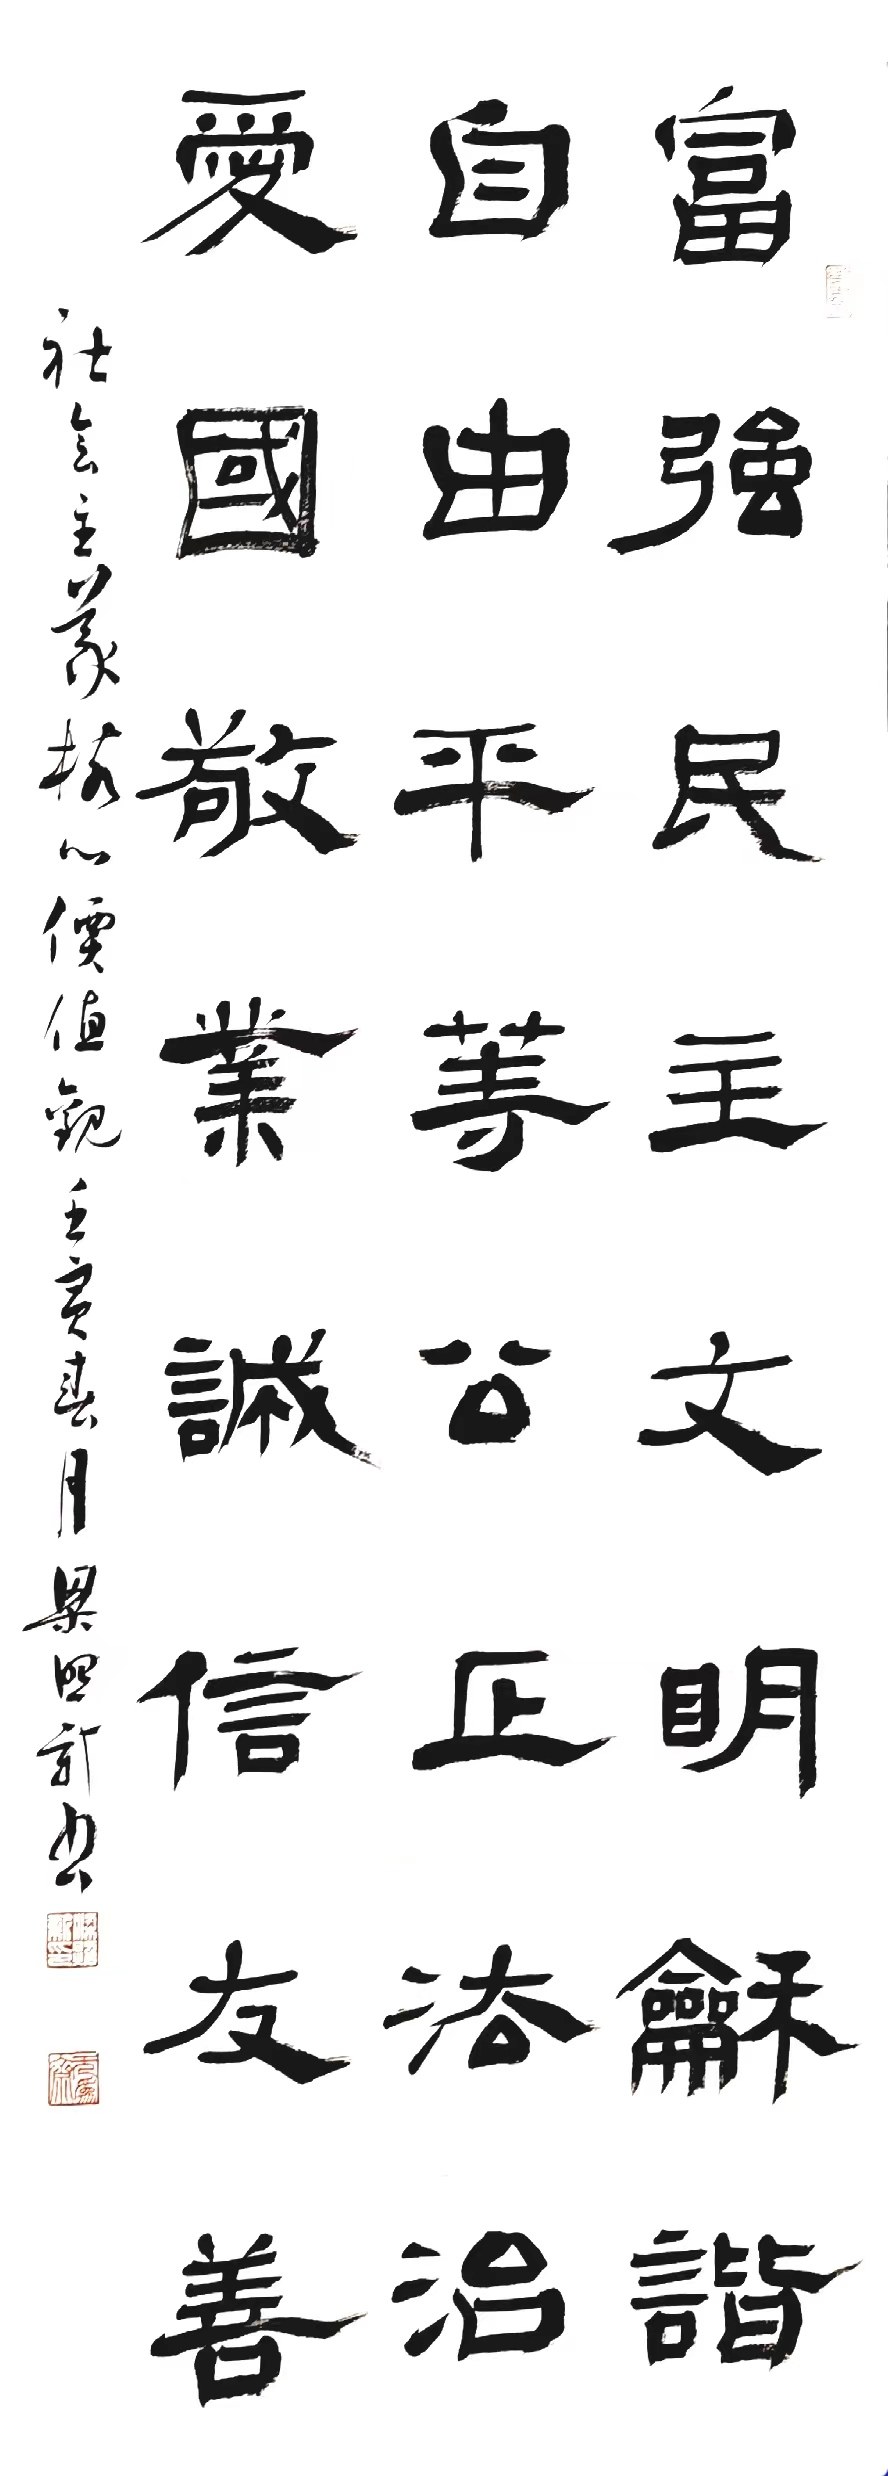 富強民主文明龢諧
自由平等公正法治
愛國敬業誠信友善
社會主義核心價值觀壬寅春月梁照新书